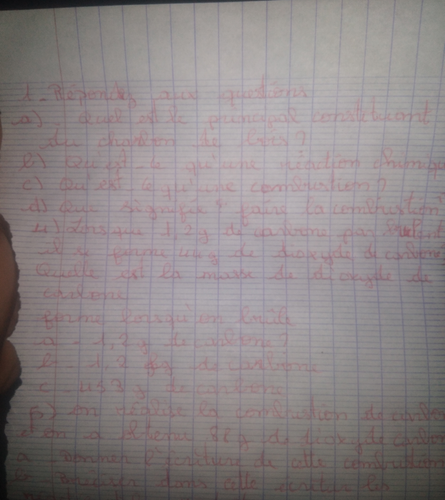 1. Répondez aux questions
a) Quel est le principal constituant
du charbon de bois?
b) Qu'est-ce qu'une réaction chimiqu
c) Qu'est ce qu'une combustion?
d) Que signifie "faire la combustion
4) Lorsque 1,2 g de carbone par
il se forme 4,4 g de dioxyde de carbone
Quelle est la masse de dioxyde de
carbone
formé lorsqu'on brûle
a - 1,2 g de carbone?
b - 1,2 kg de carbone
c - de carbone
5) on réalise la combustion de carbo
et on a obtenu de dioxyde de carbone
a donner l'écriture de cette combustion
dans cette écriture les